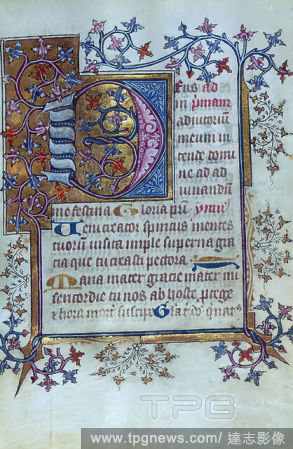 Eus ad
in p̄mam
adiutoriū
meum in
tende domi
ne ad ad
iuuandū
me festina Gloria
Veni creator spiritus mentes
tuorū uisita imple superna gra
cia que tu creasti pectora
Maria mater gracie mater mi
sericordie tu nos ab hoste p̄tege
et hora mortis suscipe Glā
TPG
www.tpgnews.com/ 達志影像